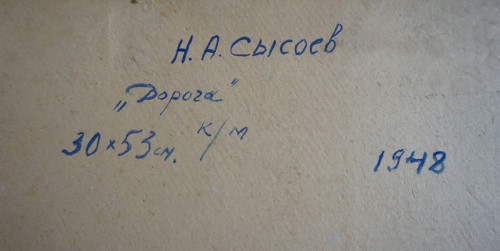 Н. А. Сысоев
„Дорога"
30×53 см. к/м
1948